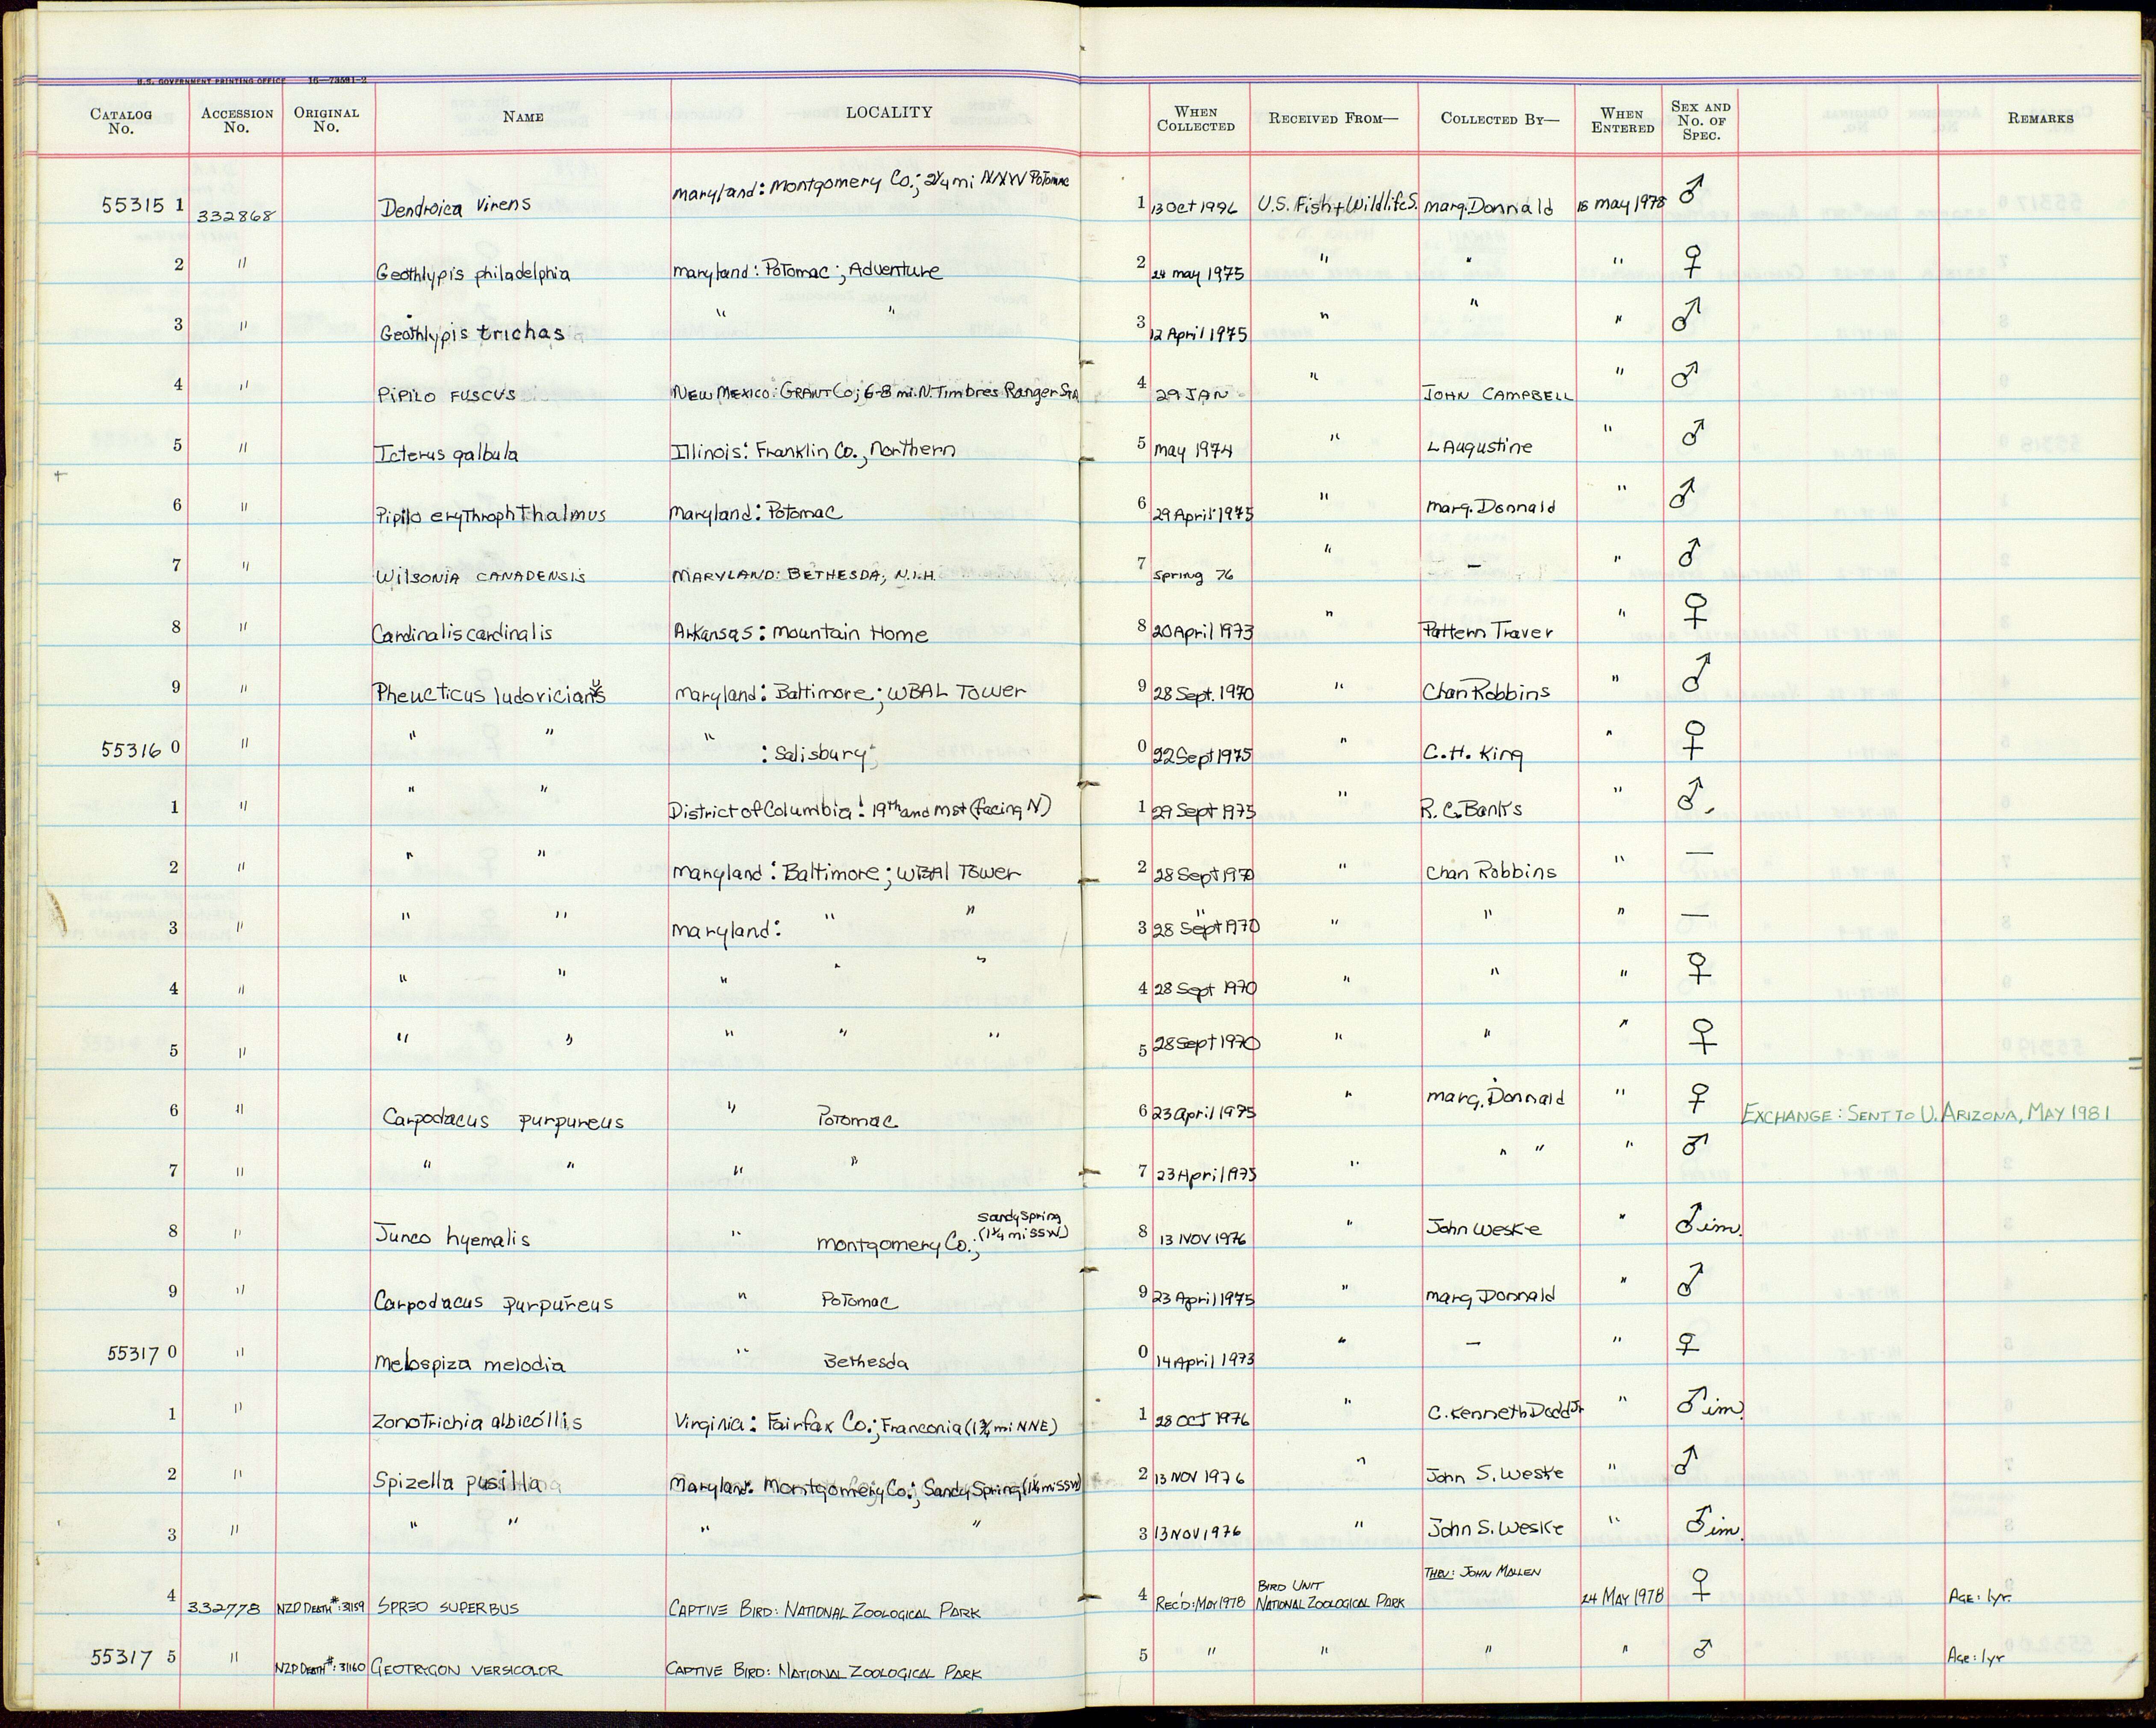 U.S. GOVERNMENT PRINTING OFFICE 16—73591-2
CATALOG No. ACCESSION No. ORIGINAL No. NAME LOCALITY WHEN COLLECTED RECEIVED FROM— COLLECTED BY— WHEN ENTERED SEX AND No. OF SPEC. REMARKS
55315 1 332868 Dendroica virens Maryland: Montgomery Co.; 2¼ mi NNW Potomac 1 13 Oct 1976 U.S. Fish + Wildlife S. Marg. Donnald 18 May 1978 ♂
2 " Geothlypis philadelphia Maryland: Potomac; Adventure 2 24 May 1975 " " " ♀
3 " Geothlypis trichas " " 3 12 April 1975 " " " ♂
4 " PIPILO FUSCUS NEW MEXICO: GRANT Co; 6-8 mi. N. Timbres Ranger STA 4 29 JAN " JOHN CAMPBELL " ♂
5 " Icterus galbula Illinois: Franklin Co., Northern 5 May 1974 " L Augustine " ♂
6 " Pipilo erythrophthalmus Maryland: Potomac 6 29 April 1975 " Marg. Donnald " ♂
7 " WILSONIA CANADENSIS MARYLAND: BETHESDA; N.I.H. 7 Spring 76 " — " ♂
8 " Cardinalis cardinalis Arkansas: Mountain Home 8 20 April 1973 " Pattern Traver " ♀
9 " Pheucticus ludovicianus Maryland: Baltimore; WBAL Tower 9 28 Sept. 1970 " Chan Robbins " ♂
55316 0 " " " " : Salisbury 0 22 Sept 1975 " C. H. King " ♀
1 " " " District of Columbia: 19th and M st (facing N) 1 29 Sept 1975 " R. C. Banks " ♂
2 " " " Maryland: Baltimore; WBAl Tower 2 28 Sept 1970 " Chan Robbins " —
3 " " " Maryland: " " 3 28 Sept 1970 " " " —
4 " " " " " " 4 28 Sept 1970 " " " ♀
5 " " " " " " 5 28 Sept 1970 " " " ♀
6 " Carpodacus purpureus " Potomac 6 23 April 1975 " Marg. Donnald " ♀ EXCHANGE: SENT TO U. ARIZONA, MAY 1981
7 " " " " " 7 23 April 1975 " " " " ♂
8 " Junco hyemalis " Montgomery Co.; Sandy Spring (1¼ mi SSW) 8 13 NOV 1976 " John Weske " ♂ im.
9 " Carpodacus purpureus " Potomac 9 23 April 1975 " Marg Donnald " ♂
55317 0 " Melospiza melodia " Bethesda 0 14 April 1973 " — " ♀
1 " Zonotrichia albicollis Virginia: Fairfax Co.; Franconia (1¾ mi NNE) 1 28 OCT 1976 " C. Kenneth Dodd Jr " ♂ im.
2 " Spizella pusilla Maryland: Montgomery Co.; Sandy Spring (1¼ mi SSW) 2 13 NOV 1976 " John S. Weske " ♂
3 " " " " " 3 13 NOV 1976 " John S. Weske " ♂ im.
4 332778 NZP DEATH #: 31159 SPREO SUPERBUS CAPTIVE BIRD: NATIONAL ZOOLOGICAL PARK 4 REC'D: MAY 1978 BIRD UNIT NATIONAL ZOOLOGICAL PARK THRU: JOHN MALLEN 24 MAY 1978 ♀ AGE: 1yr.
55317 5 " NZP DEATH #: 31160 GEOTRYGON VERSICOLOR CAPTIVE BIRD: NATIONAL ZOOLOGICAL PARK 5 " " " " ♂ AGE: 1yr